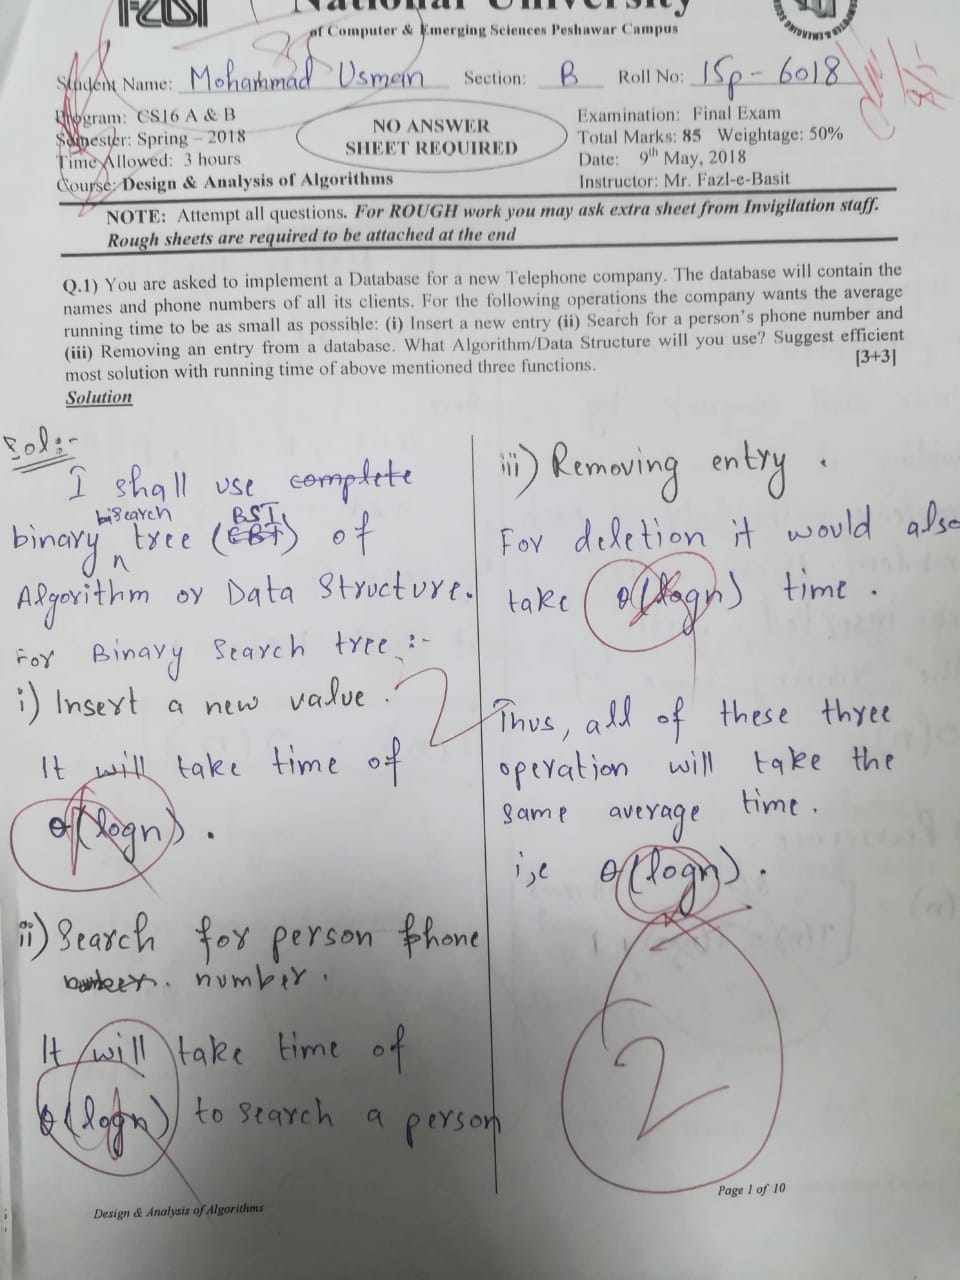 National University
of Computer & Emerging Sciences Peshawar Campus
Student Name: Mohammad Usman Section: B Roll No: 15p-6018
Program: CS16 A & B
Semester: Spring – 2018
Time Allowed: 3 hours
Course: Design & Analysis of Algorithms
NO ANSWER
SHEET REQUIRED
Examination: Final Exam
Total Marks: 85 Weightage: 50%
Date: 9th May, 2018
Instructor: Mr. Fazl-e-Basit
NOTE: Attempt all questions. For ROUGH work you may ask extra sheet from Invigilation staff.
Rough sheets are required to be attached at the end
Q.1) You are asked to implement a Database for a new Telephone company. The database will contain the
names and phone numbers of all its clients. For the following operations the company wants the average
running time to be as small as possible: (i) Insert a new entry (ii) Search for a person's phone number and
(iii) Removing an entry from a database. What Algorithm/Data Structure will you use? Suggest efficient
most solution with running time of above mentioned three functions. [3+3]
Solution
Sol:-
I shall use complete
bisearch BST
binary tree (CBT) of
Algorithm or Data Structure.
For Binary Search tree :-
i) Insert a new value.
2
It will take time of
θ(logn).
ii) Search for person phone
number.
It will take time of
θ(logn) to search a person
iii) Removing entry.
For deletion it would also
take θ(logn) time.
Thus, all of these three
operation will take the
same average time.
i,e θ(logn).
2
Page 1 of 10
Design & Analysis of Algorithms